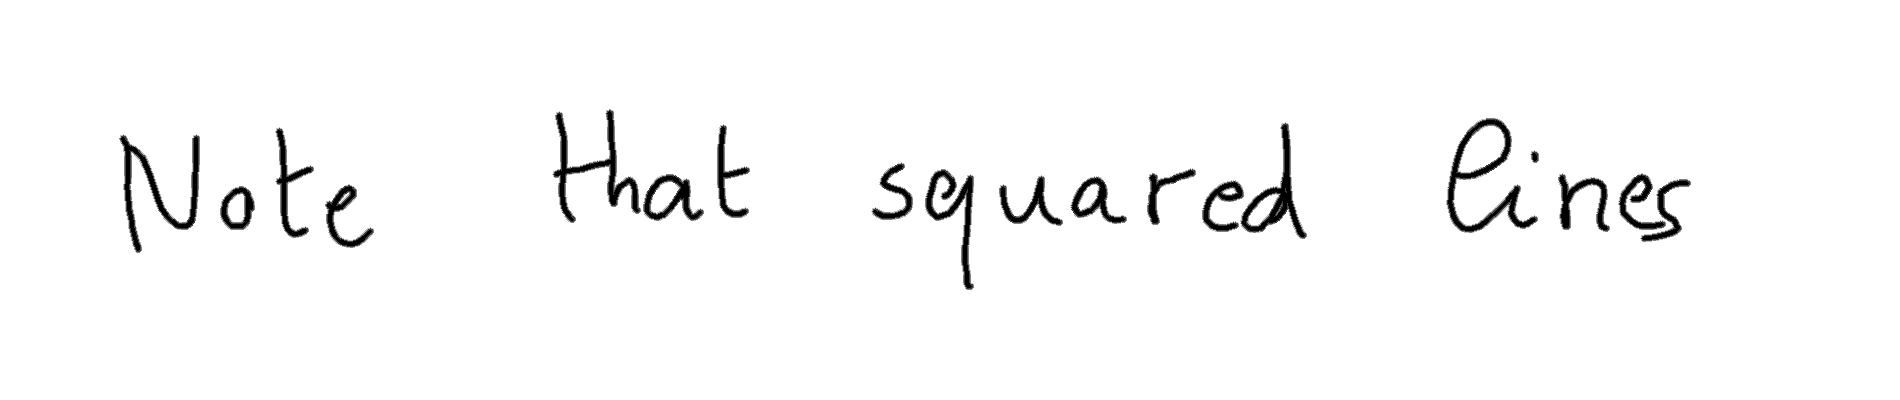 Note that squared lines